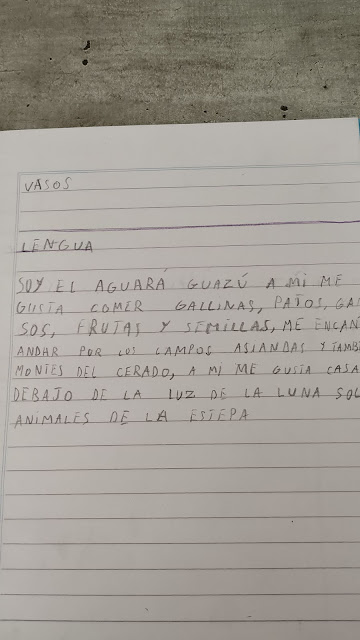 VASOS
LENGUA
SOY EL AGUARÁ GUAZÚ A MÍ ME
GUSTA COMER GALLINAS, PATOS, GAN
SOS, FRUTAS Y SEMILLAS, ME ENCAN
ANDAR POR LOS CAMPOS ASIANDAS Y TAMB
MONTES DEL CERADO, A MI ME GUSTA CASA
DEBAJO DE LA LUZ DE LA LUNA SOL
ANIMALES DE LA ESTEPA